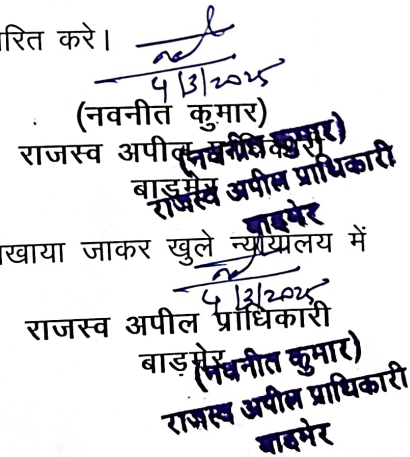 रित करे।
4/3/2025
(नवनीत कुमार)
राजस्व अपील प्राधिकारी
(नवनीत कुमार)
बाड़मेर
राजस्व अपील प्राधिकारी
बाड़मेर
खाया जाकर खुले न्यायालय में
4/3/2025
राजस्व अपील प्राधिकारी
बाड़मेर
(नवनीत कुमार)
राजस्व अपील प्राधिकारी
बाड़मेर